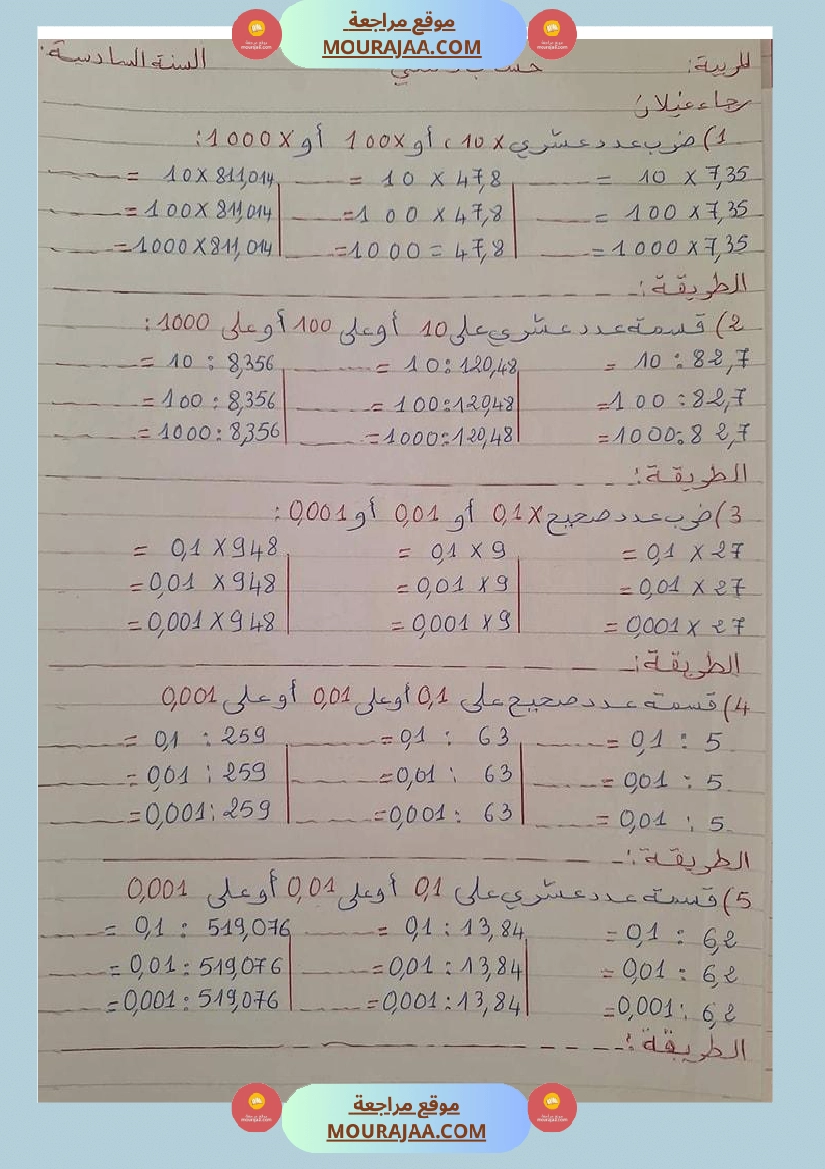 موقع مراجعة
MOURAJAA.COM
المربية: السنة السادسة
رجاء عيلان
1) ضرب عدد عشري X 10، أو 100X أو 1000X:
7,35 X 10 = 47,8 X 10 = 811,014 X 10 =
7,35 X 100 = 47,8 X 100 = 811,014 X 100 =
7,35 X 1000 = 47,8 = 1000 = 811,014 X 1000 =
الطريقة:
2) قسمة عدد عشري على 10 أو على 100 أو على 1000:
82,7 : 10 = 120,48 : 10 = 8,356 : 10 =
82,7 : 100 = 120,48 : 100 = 8,356 : 100 =
82,7 : 1000 = 120,48 : 1000 = 8,356 : 1000 =
الطريقة:
3) ضرب عدد صحيح X 0,1 أو 0,01 أو 0,001:
27 X 0,1 = 9 X 0,1 = 948 X 0,1 =
27 X 0,01 = 9 X 0,01 = 948 X 0,01 =
27 X 0,001 = 9 X 0,001 = 948 X 0,001 =
الطريقة:
4) قسمة عدد صحيح على 0,1 أو على 0,01 أو على 0,001
5 : 0,1 = 63 : 0,1 = 259 : 0,1 =
5 : 0,01 = 63 : 0,01 = 259 : 0,01 =
5 : 0,01 = 63 : 0,001 = 259 : 0,001 =
الطريقة:
5) قسمة عدد عشري على 0,1 أو على 0,01 أو على 0,001
6,2 : 0,1 = 13,84 : 0,1 = 519,076 : 0,1 =
6,2 : 0,01 = 13,84 : 0,01 = 519,076 : 0,01 =
6,2 : 0,001 = 13,84 : 0,001 = 519,076 : 0,001 =
الطريقة:
موقع مراجعة
MOURAJAA.COM